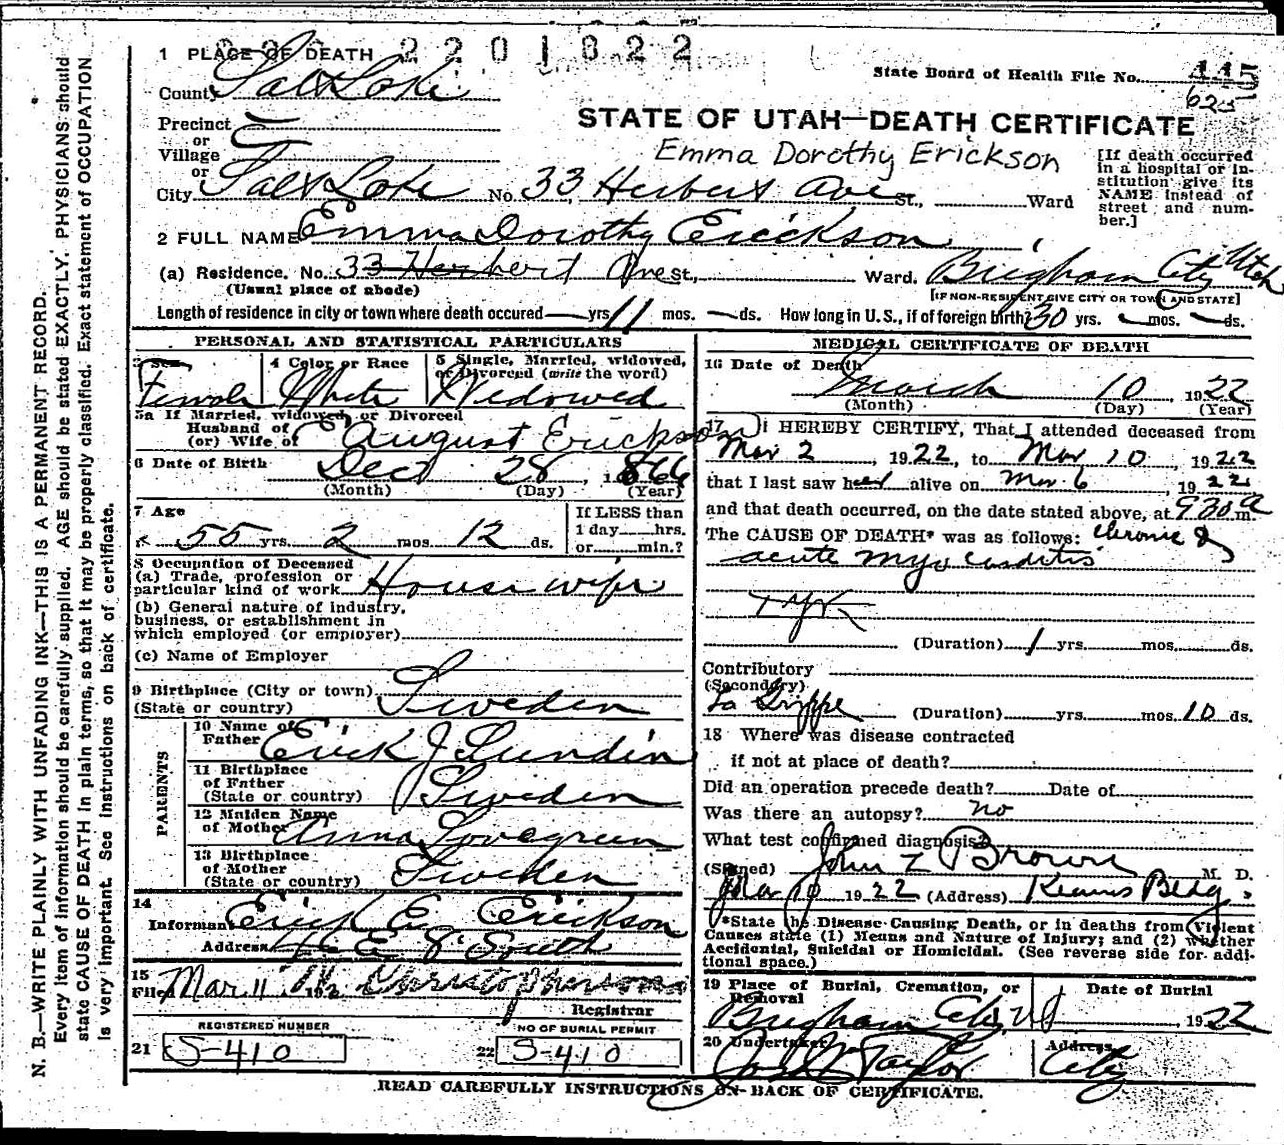 2201822
1 PLACE OF DEATH
State Board of Health File No. 445
625
County Salt Lake
STATE OF UTAH—DEATH CERTIFICATE
Precinct
or
Village
or
Emma Dorothy Erickson
[If death occurred in a hospital or institution give its NAME instead of street and number.]
City Salt Lake No. 33 Herbert Ave St., Ward
2 FULL NAME Emma Dorothy Erickson
(a) Residence. No. 33 Herbert Ave St., Ward. Brigham City Utah
(Usual place of abode) [IF NON-RESIDENT GIVE CITY OR TOWN AND STATE]
Length of residence in city or town where death occured — yrs 11 mos. — ds. How long in U.S., if of foreign birth? 30 yrs. — mos. — ds.
PERSONAL AND STATISTICAL PARTICULARS
3 Sex 4 Color or Race 5 Single, Married, widowed, or Divorced (write the word)
Female White Widowed
5a If Married, widowed, or Divorced
Husband of
(or) Wife of August Erickson
6 Date of Birth Dec 28, 1866
(Month) (Day) (Year)
7 Age If LESS than
55 yrs. 2 mos. 12 ds. 1 day hrs.
or min.?
8 Occupation of Deceased
(a) Trade, profession or
particular kind of work Housewife
(b) General nature of industry,
business, or establishment in
which employed (or employer)
(c) Name of Employer
9 Birthplace (City or town)
(State or country) Sweden
PARENTS
10 Name of
Father Erick J Lundin
11 Birthplace
of Father
(State or country) Sweden
12 Maiden Name
of Mother Anna Lovegreen
13 Birthplace
of Mother
(State or country) Sweden
14
Informant Erick E. Erickson
Address E 8" South
15
Filed Mar. 11 192
Registrar
REGISTERED NUMBER NO OF BURIAL PERMIT
21 S-410 22 S-410
MEDICAL CERTIFICATE OF DEATH
16 Date of Death
March 10 1922
(Month) (Day) (Year)
17 I HEREBY CERTIFY, That I attended deceased from
Mar 2, 1922, to Mar 10, 1922
that I last saw her alive on Mar 6, 1922
and that death occurred, on the date stated above, at 9 30 a m.
The CAUSE OF DEATH* was as follows: Chronic &
acute myocarditis
(Duration) 1 yrs. mos. ds.
Contributory
(Secondary)
La Grippe (Duration) yrs. mos. 10 ds.
18 Where was disease contracted
if not at place of death?
Did an operation precede death? Date of
Was there an autopsy? no
What test confirmed diagnosis?
(Signed) John Z Brown M. D.
Mar 10 1922 (Address) Kearns Bldg.
*State the Disease Causing Death, or in deaths from Violent
Causes state (1) Means and Nature of Injury; and (2) whether
Accidental, Suicidal or Homicidal. (See reverse side for addi-
tional space.)
19 Place of Burial, Cremation, or Removal Date of Burial
Brigham City, U 1922
20 Undertaker Address
Jos. Wm Taylor City
READ CAREFULLY INSTRUCTIONS ON BACK OF CERTIFICATE.
N. B.—WRITE PLAINLY WITH UNFADING INK—THIS IS A PERMANENT RECORD.
Every item of information should be carefully supplied. AGE should be stated EXACTLY. PHYSICIANS should
state CAUSE OF DEATH in plain terms, so that it may be properly classified. Exact statement of OCCUPATION
is very important. See instructions on back of certificate.